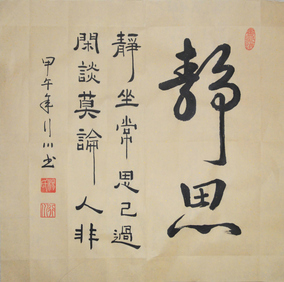 靜思
靜坐常思己過
閑談莫論人非
甲午年行川书